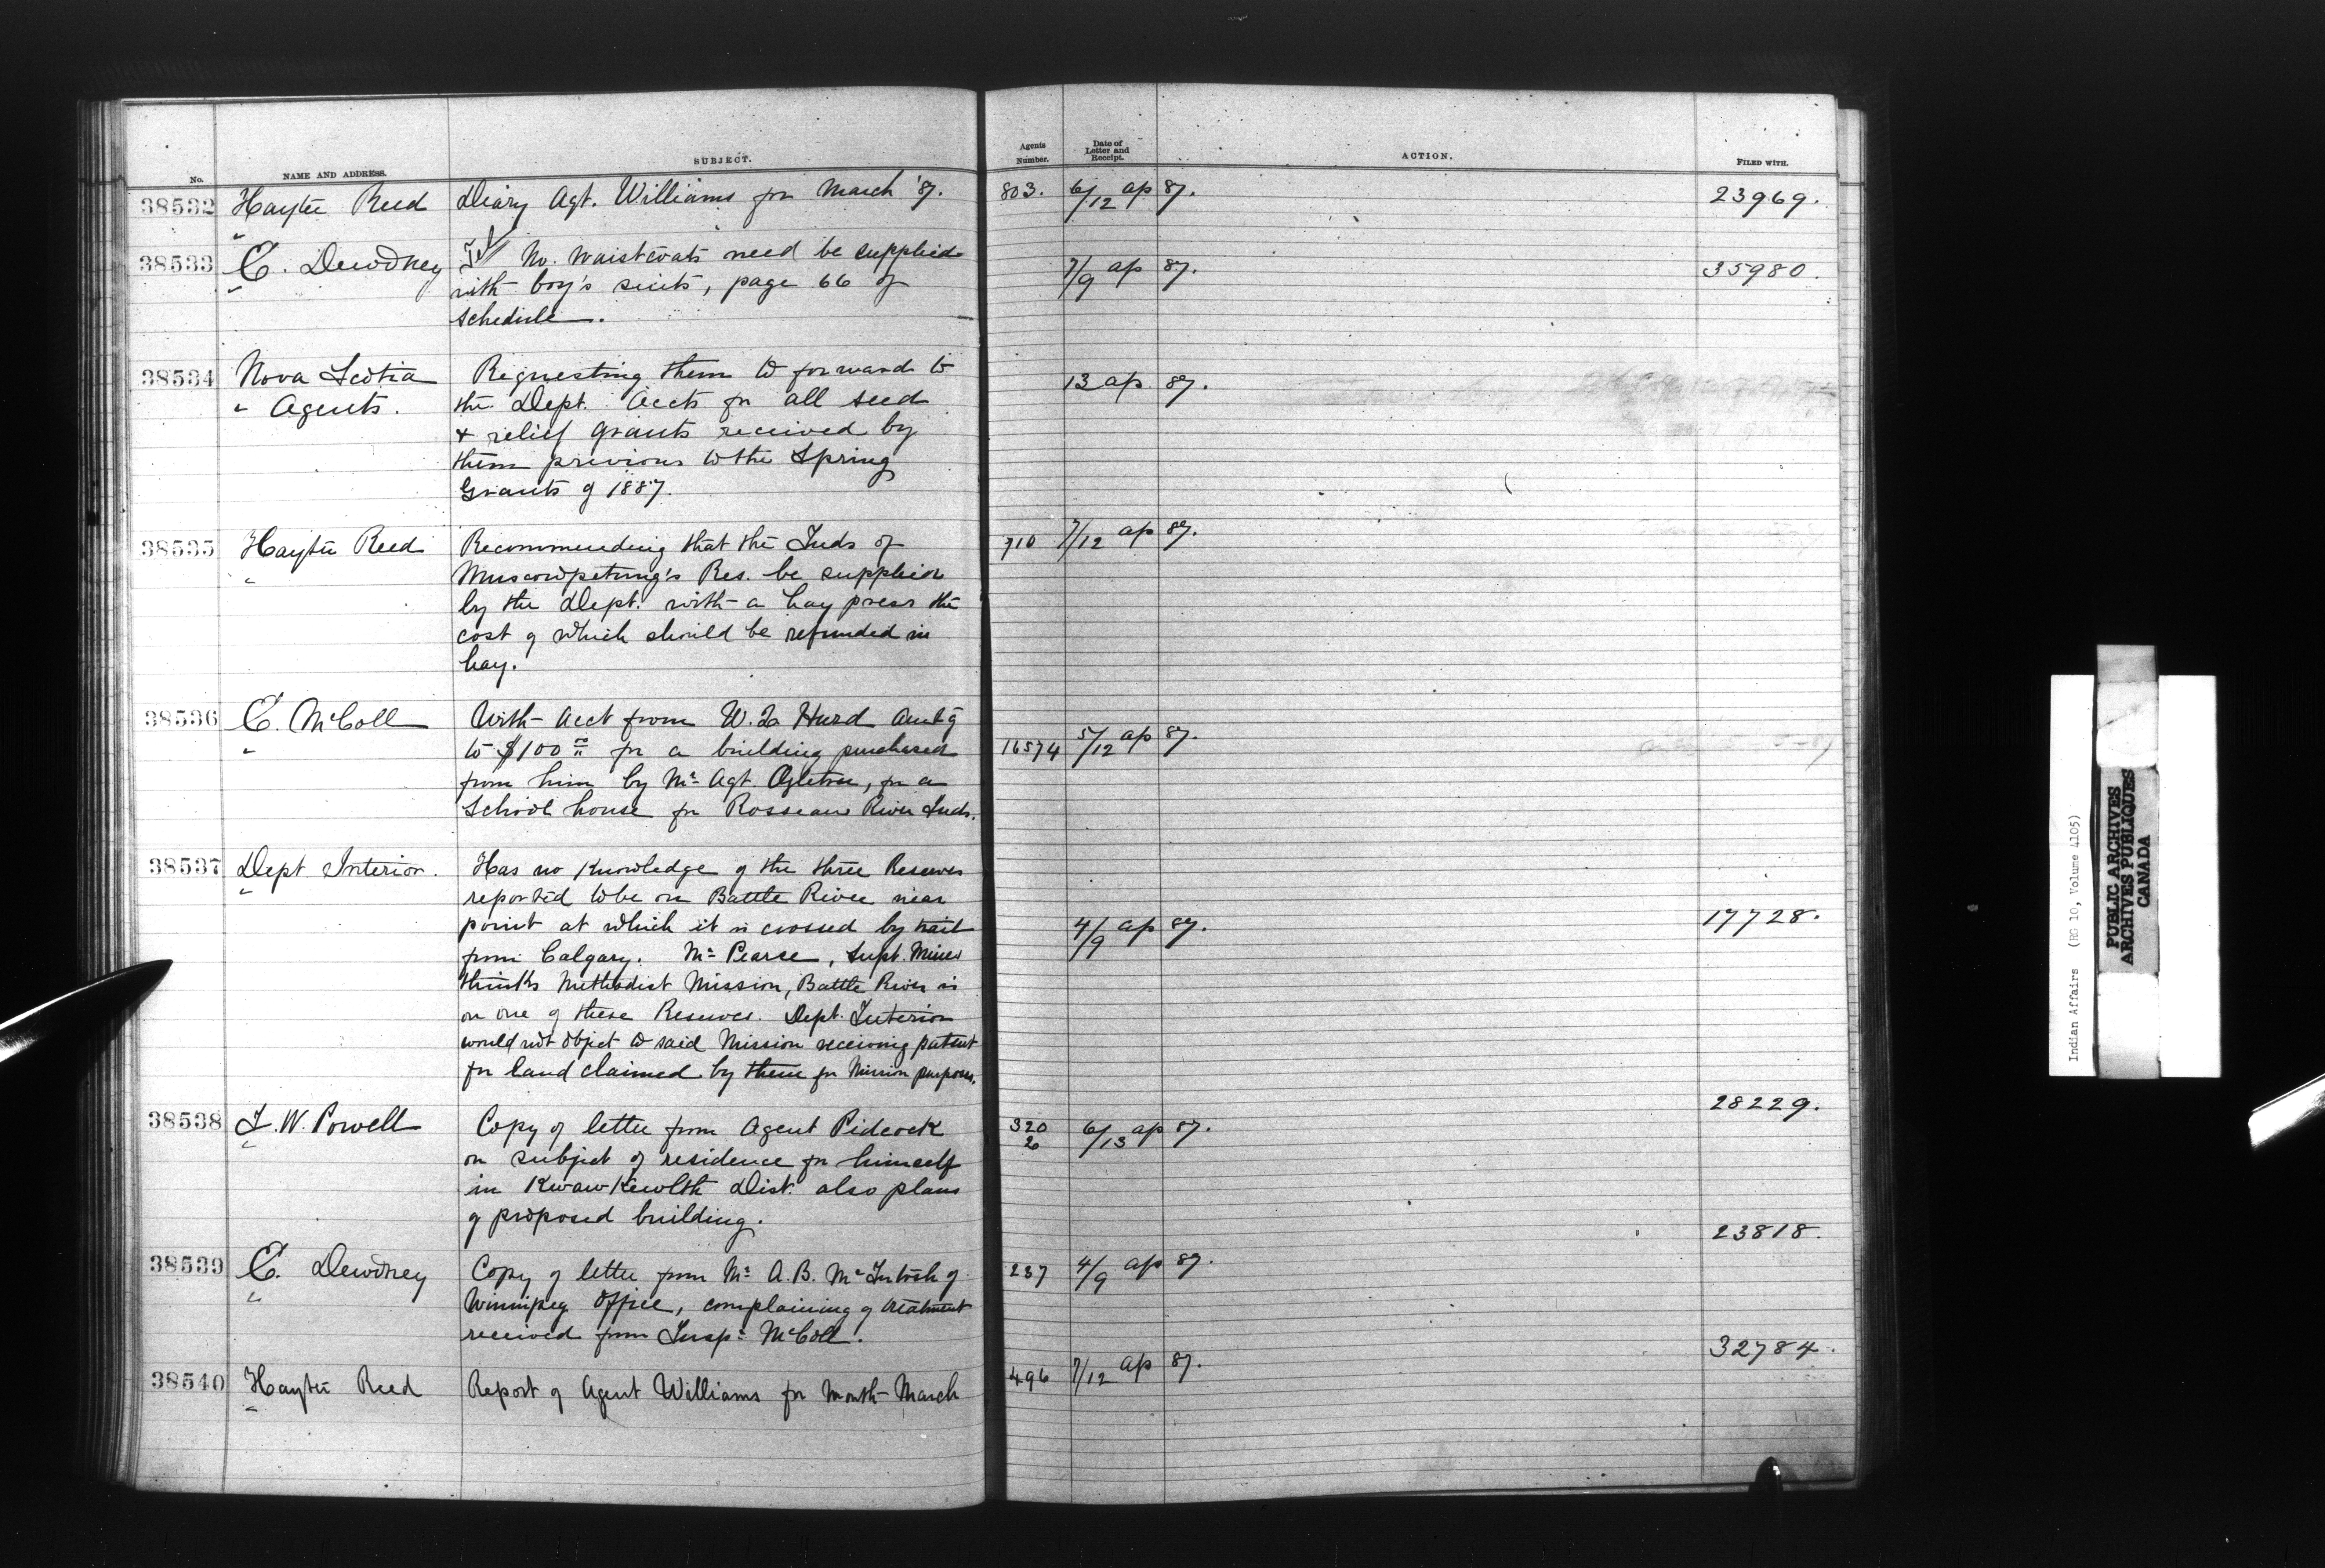 No. NAME AND ADDRESS. SUBJECT. Agents Number. Date of Letter and Receipt. ACTION. FILED WITH.
38532 Hayter Reed Diary Agt. Williams for March '87. 803. 6/12 ap 87. 23969.
"
38533 E. Dewdney No. Waistcoats need be supplied 7/9 ap 87. 35980.
" with boy's suits, page 66 of
schedule.
38534 Nova Scotia Requesting them to forward to 13 ap 87.
" Agents. the Dept. accts for all seed
& relief grants received by
them previous to the Spring
Grants of 1887.
38535 Hayter Reed Recommending that the Inds of 710 7/12 ap 87.
" Muscowpetung's Res. be supplied
by the Dept. with a hay press the
cost of which should be refunded in
hay.
38536 E. McColl With acct from W. Hurd amtg
" to $100 for a building purchased 16574 5/12 ap 87.
from him by Mr Agt. Ogletree, for a
School house for Rosseau River Inds.
38537 Dept Interior. Has no knowledge of the three Reserves
" reported to be on Battle River near
point at which it is crossed by trail 4/9 ap 87. 17728.
from Calgary. Mr Pearce, Supt. Mines
thinks Methodist Mission, Battle River is
on one of these Reserves. Dept. Interior
would not object to said Mission receiving patent
for land claimed by them for Mission purposes.
28229.
38538 I. W. Powell Copy of letter from Agent Pidcock 320/2 6/13 ap 87.
" on subject of residence for himself
in Kwawkewlth Dist. also plans
of proposed building.
23818.
38539 E. Dewdney Copy of letter from Mr A. B. McIntosh of 237 4/9 ap 87.
" Winnipeg office, complaining of treatment
received from Inspr McColl.
32784.
38540 Hayter Reed Report of Agent Williams for month March 496 7/12 ap 87.
"
Indian Affairs (RG 10, Volume 4105)
PUBLIC ARCHIVES
ARCHIVES PUBLIQUES
CANADA